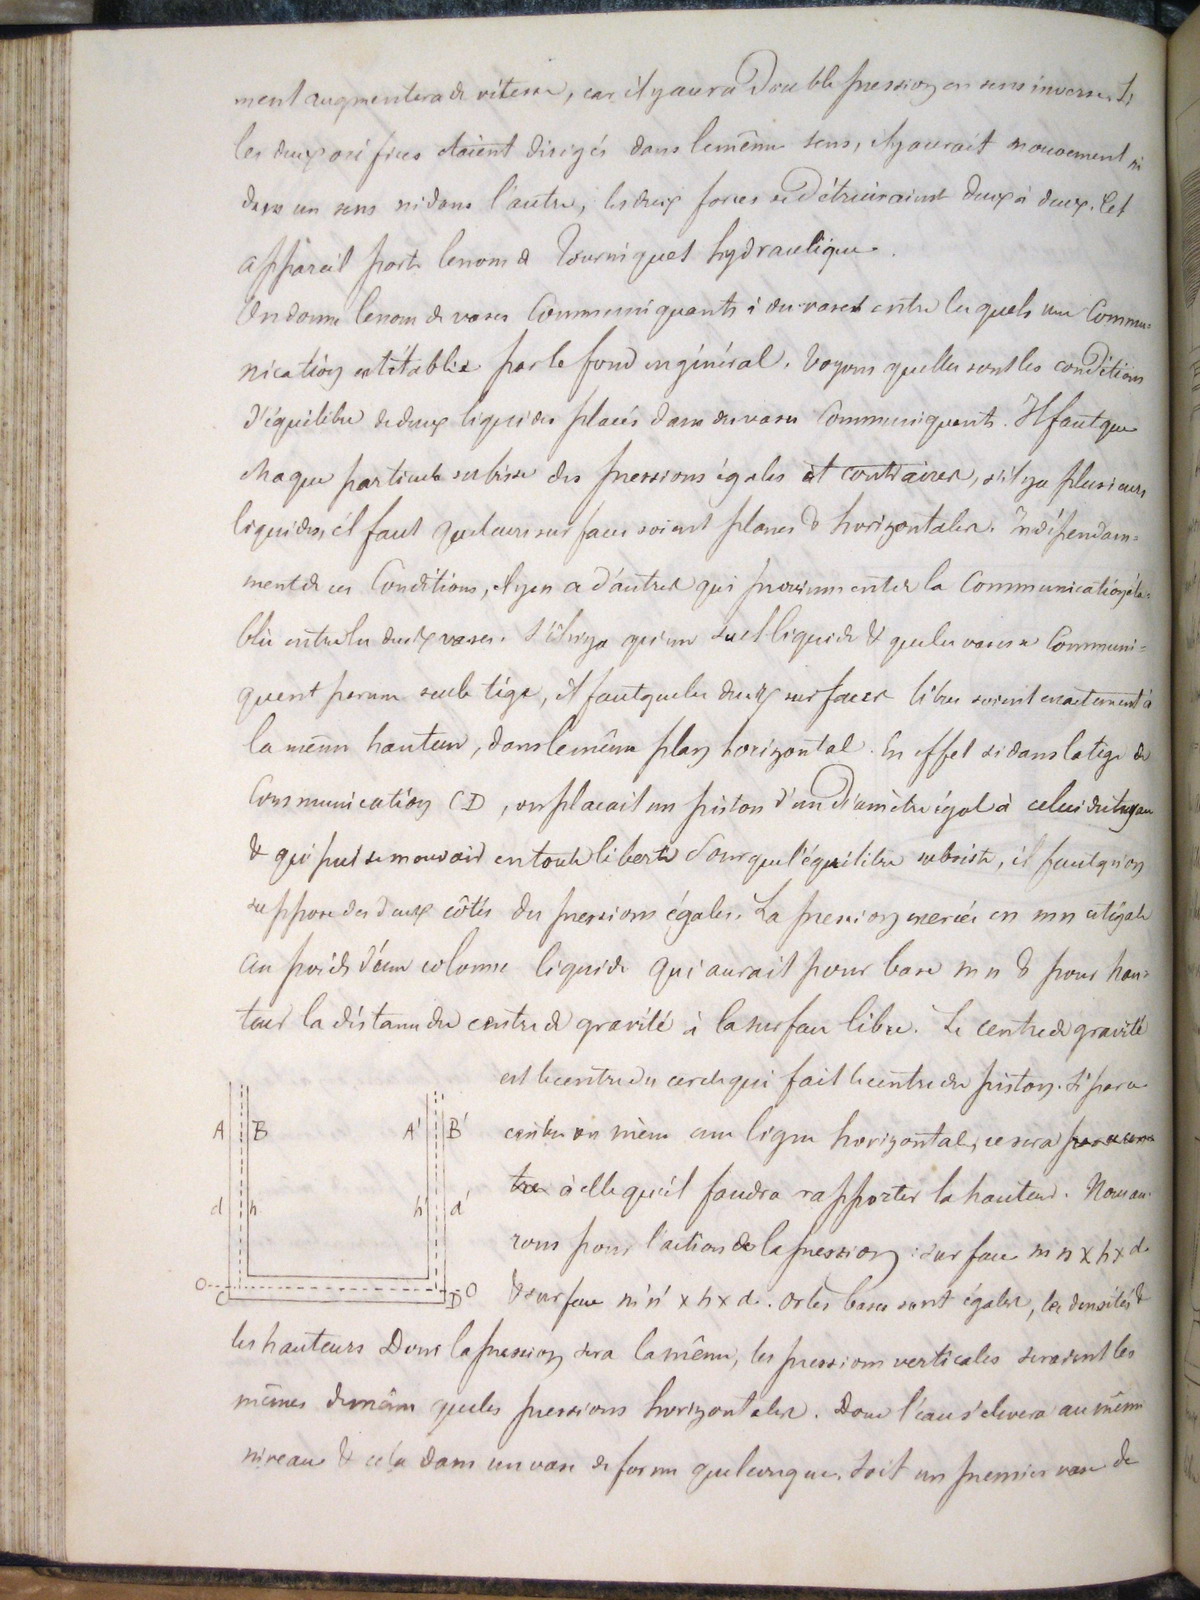 ment augmentera de vitesse, car il y aura double pression en sens inverse. Si
les deux orifices étaient dirigés dans le même sens, il y aurait mouvement ni
dans un sens ni dans l'autre, les deux forces se détruiraient deux à deux. Cet
appareil porte le nom de Tourniquet hydraulique.
On donne le nom de vases Communiquants à des vases entre lesquels une Commu=
nication est établie par le fond en général. Voyons quelles sont les conditions
d'équilibre de deux liquides placés dans des vases Communiquants. Il faut que
chaque particule subisse des pressions égales et contraires, s'il y a plusieurs
liquides, il faut que leurs surfaces soient planes & horizontales. Indépendam=
ment de ces Conditions, il y en a d'autres qui proviennent de la Communication éta=
blie entre les deux vases. S'il n'y a qu'un seul liquide & que les vases Communi=
quent par une seule tige, il faut que les deux surfaces libres soient exactement à
la même hauteur, dans le même plan horizontal. En effet si dans la tige de
Communication CD, on plaçait un piston d'un diamètre égal à celui du tuyau
& qui puisse mouvoir en toute liberté Pour que l'équilibre subsiste, il faut qu'on
suppose des deux côtés des pressions égales. La pression exercée en mn est égale
au poids d'une colonne liquide qui aurait pour base mn & pour hau=
teur la distance du centre de gravité à la surface libre. Le centre de gravité
est le centre du cercle qui fait le centre du piston. Si par ce
centre on mène une ligne horizontale, ce sera par ce cen
tre à elle qu'il faudra rapporter la hauteur. Nous au=
rons pour l'action de la pression : surface mn x h x d.
& surface m'n' x h x d. or les bases sont égales, les densités &
les hauteurs Donc la pression sera la même, les pressions verticales seraient les
mêmes de même que les pressions horizontales. Donc l'eau s'élèvera au même
niveau & cela dans un vase de forme quelconque. Soit un premier vase de
A B A' B'
d h h' d'
O C D O